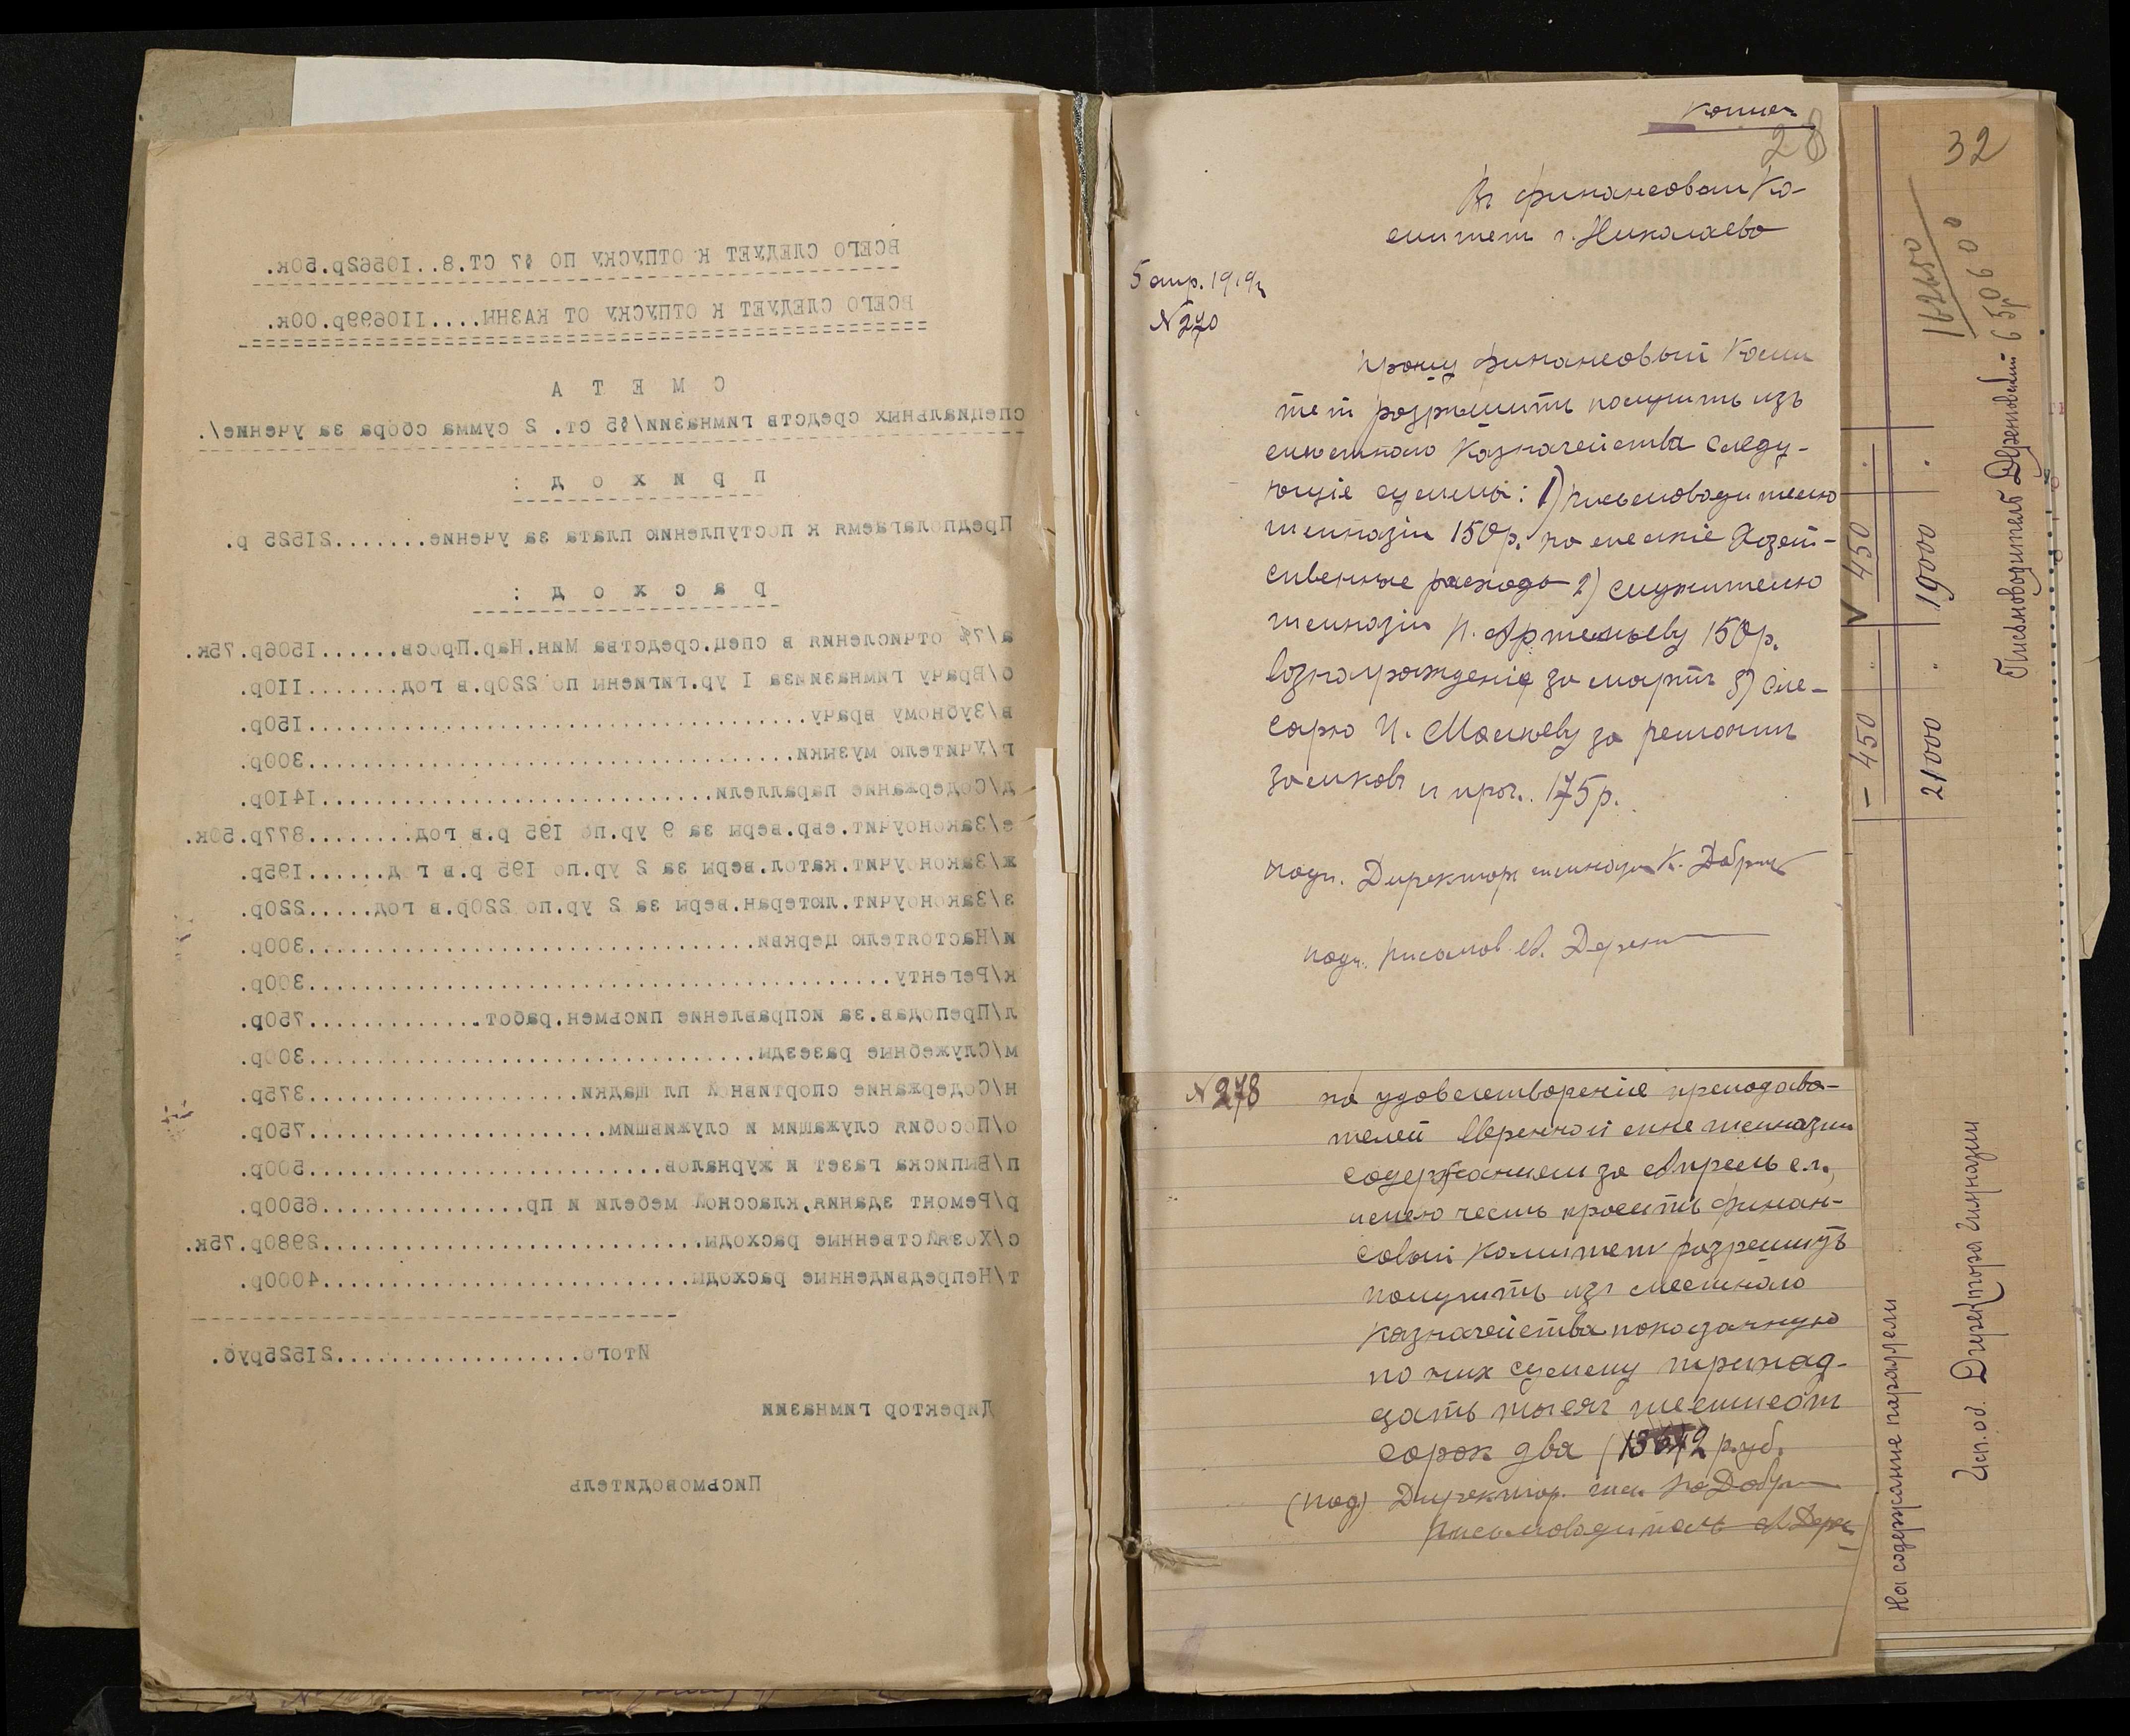 ВСЕГО СЛЕДУЕТ К ОТПУСКУ ПО §7 СТ.8..10562р.50к.
ВСЕГО СЛЕДУЕТ К ОТПУСКУ ОТ КАЗНЫ....110699р.00к.
С М Е Т А
специальных средств гимназии/§5 ст. 2 сумма сбора за учение/.
п р и х о д :
Предполагаемя к поступлению плата за учение........21525 р.
р а с х о д :
а/7% отчисления в спец.средства Мин.Нар.Просв.......1506р.75к.
б/Врачу гимназииза 1 ур.гигиены по 220р.в год........110р.
в/Зубному врачу...........150р.
г/Учителю музыки...........300р.
д/Содержание параллели...........1410р.
е/Законоучит.евр.веры за 9 ур.по 195 р.в год.........877р.50к.
ж/Законоучит.катол.веры за 2 ур.по 195 р.в год.......195р.
з/Законоучит.лютеран.веры за 2 ур.по 220р.в год......220р.
и/Настоятелю церкви...........300р.
к/Регенту...........300р.
л/Преподав.за исправление письмен.работ...........750р.
м/Служебные разезды...........300р.
н/Содержание спортивной площадки...........375р.
о/Пособия служащим и служившим...........750р.
п/Выписка газет и журналов...........500р.
р/Ремонт здания,классной мебели и пр...........6500р.
с/Хозяйственные расходы...........2980р.75к.
т/Непредвиденные расходы...........4000р.
Итого...........21525руб.
Директор гимназии
Письмоводитель
Копия
28
Въ финансовый Ко-
митет г. Николаева
5 апр. 1919г
№270
Прошу финансовый Коми
тет разрешить получить изъ
местнаго Казначейства следу-
ющіе суммы: 1) письмоводителю
гимназіи 150р. на мелкіе Хозяй-
ственные расходы 2) служителю
гимназіи П. Артемьеву 150р.
вознагражденіе за мартъ 3) сле-
сарю И. за ремонт
замковъ и проч. 175р.
подп. Директор гимназіи К.
подп. письмов. А.
№278
на удовлетвореніе преподава-
телей вверенной мне гимназіи
содержанием за Апрель с.г.,
имею честь просить финан-
совый Комитет разрешить
получить изъ местнаго
казначейства показанную
по ним сумму тринад-
цать тысяч шестьсот
сорок два (13642) руб.
(под) Директор. гим.
Письмоводитель А.
32
16250
6 50600
- 450 .. V 450 .
21000 . 19000 .
На содержание параллели
Исп.об. Директора гимназии
Письмоводитель